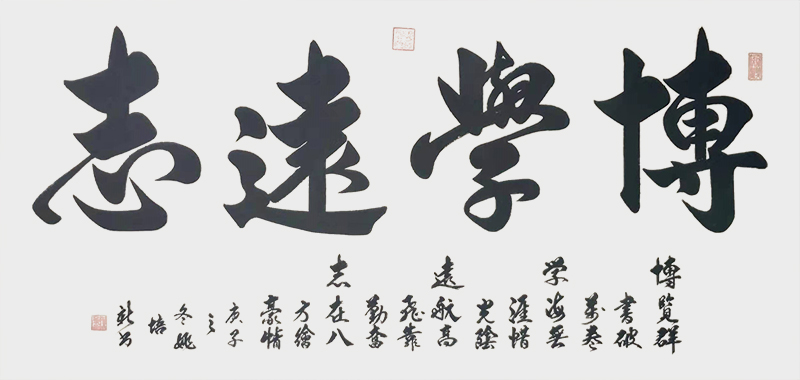 博學遠志
博覽群
書破
萬卷
学海無
涯惜
光陰
遠航高
飛靠
勤奮
志在八
方繪
豪情
庚子
之
冬姚
培
新